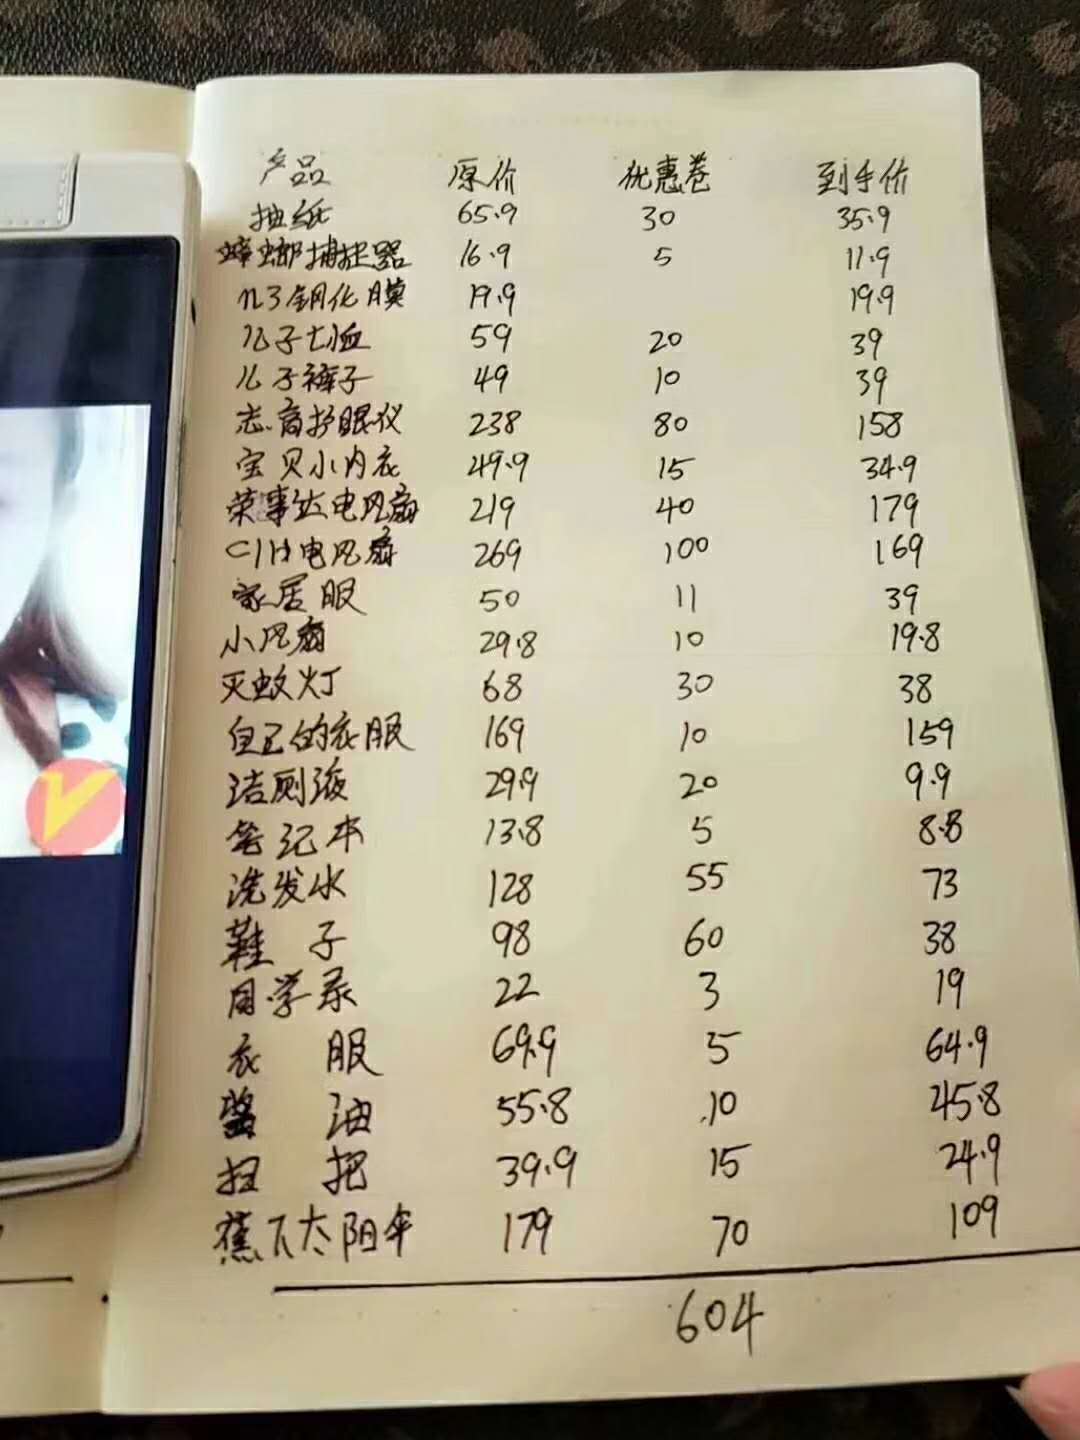 产品 原价 优惠卷 到手价
抽纸 65.9 30 35.9
蟑螂捕捉器 16.9 5 11.9
n3钢化膜 19.9 19.9
儿子七恤 59 20 39
儿子裤子 49 10 39
志高护眼仪 238 80 158
宝贝小内衣 49.9 15 34.9
荣事达电风扇 219 40 179
电风扇 269 100 169
家居服 50 11 39
小风扇 29.8 10 19.8
灭蚊灯 68 30 38
自己的衣服 169 10 159
洁厕液 29.9 20 9.9
笔记本 13.8 5 8.8
洗发水 128 55 73
鞋子 98 60 38
同学录 22 3 19
衣服 69.9 5 64.9
酱油 55.8 10 45.8
扫把 39.9 15 24.9
蕉下太阳伞 179 70 109
604